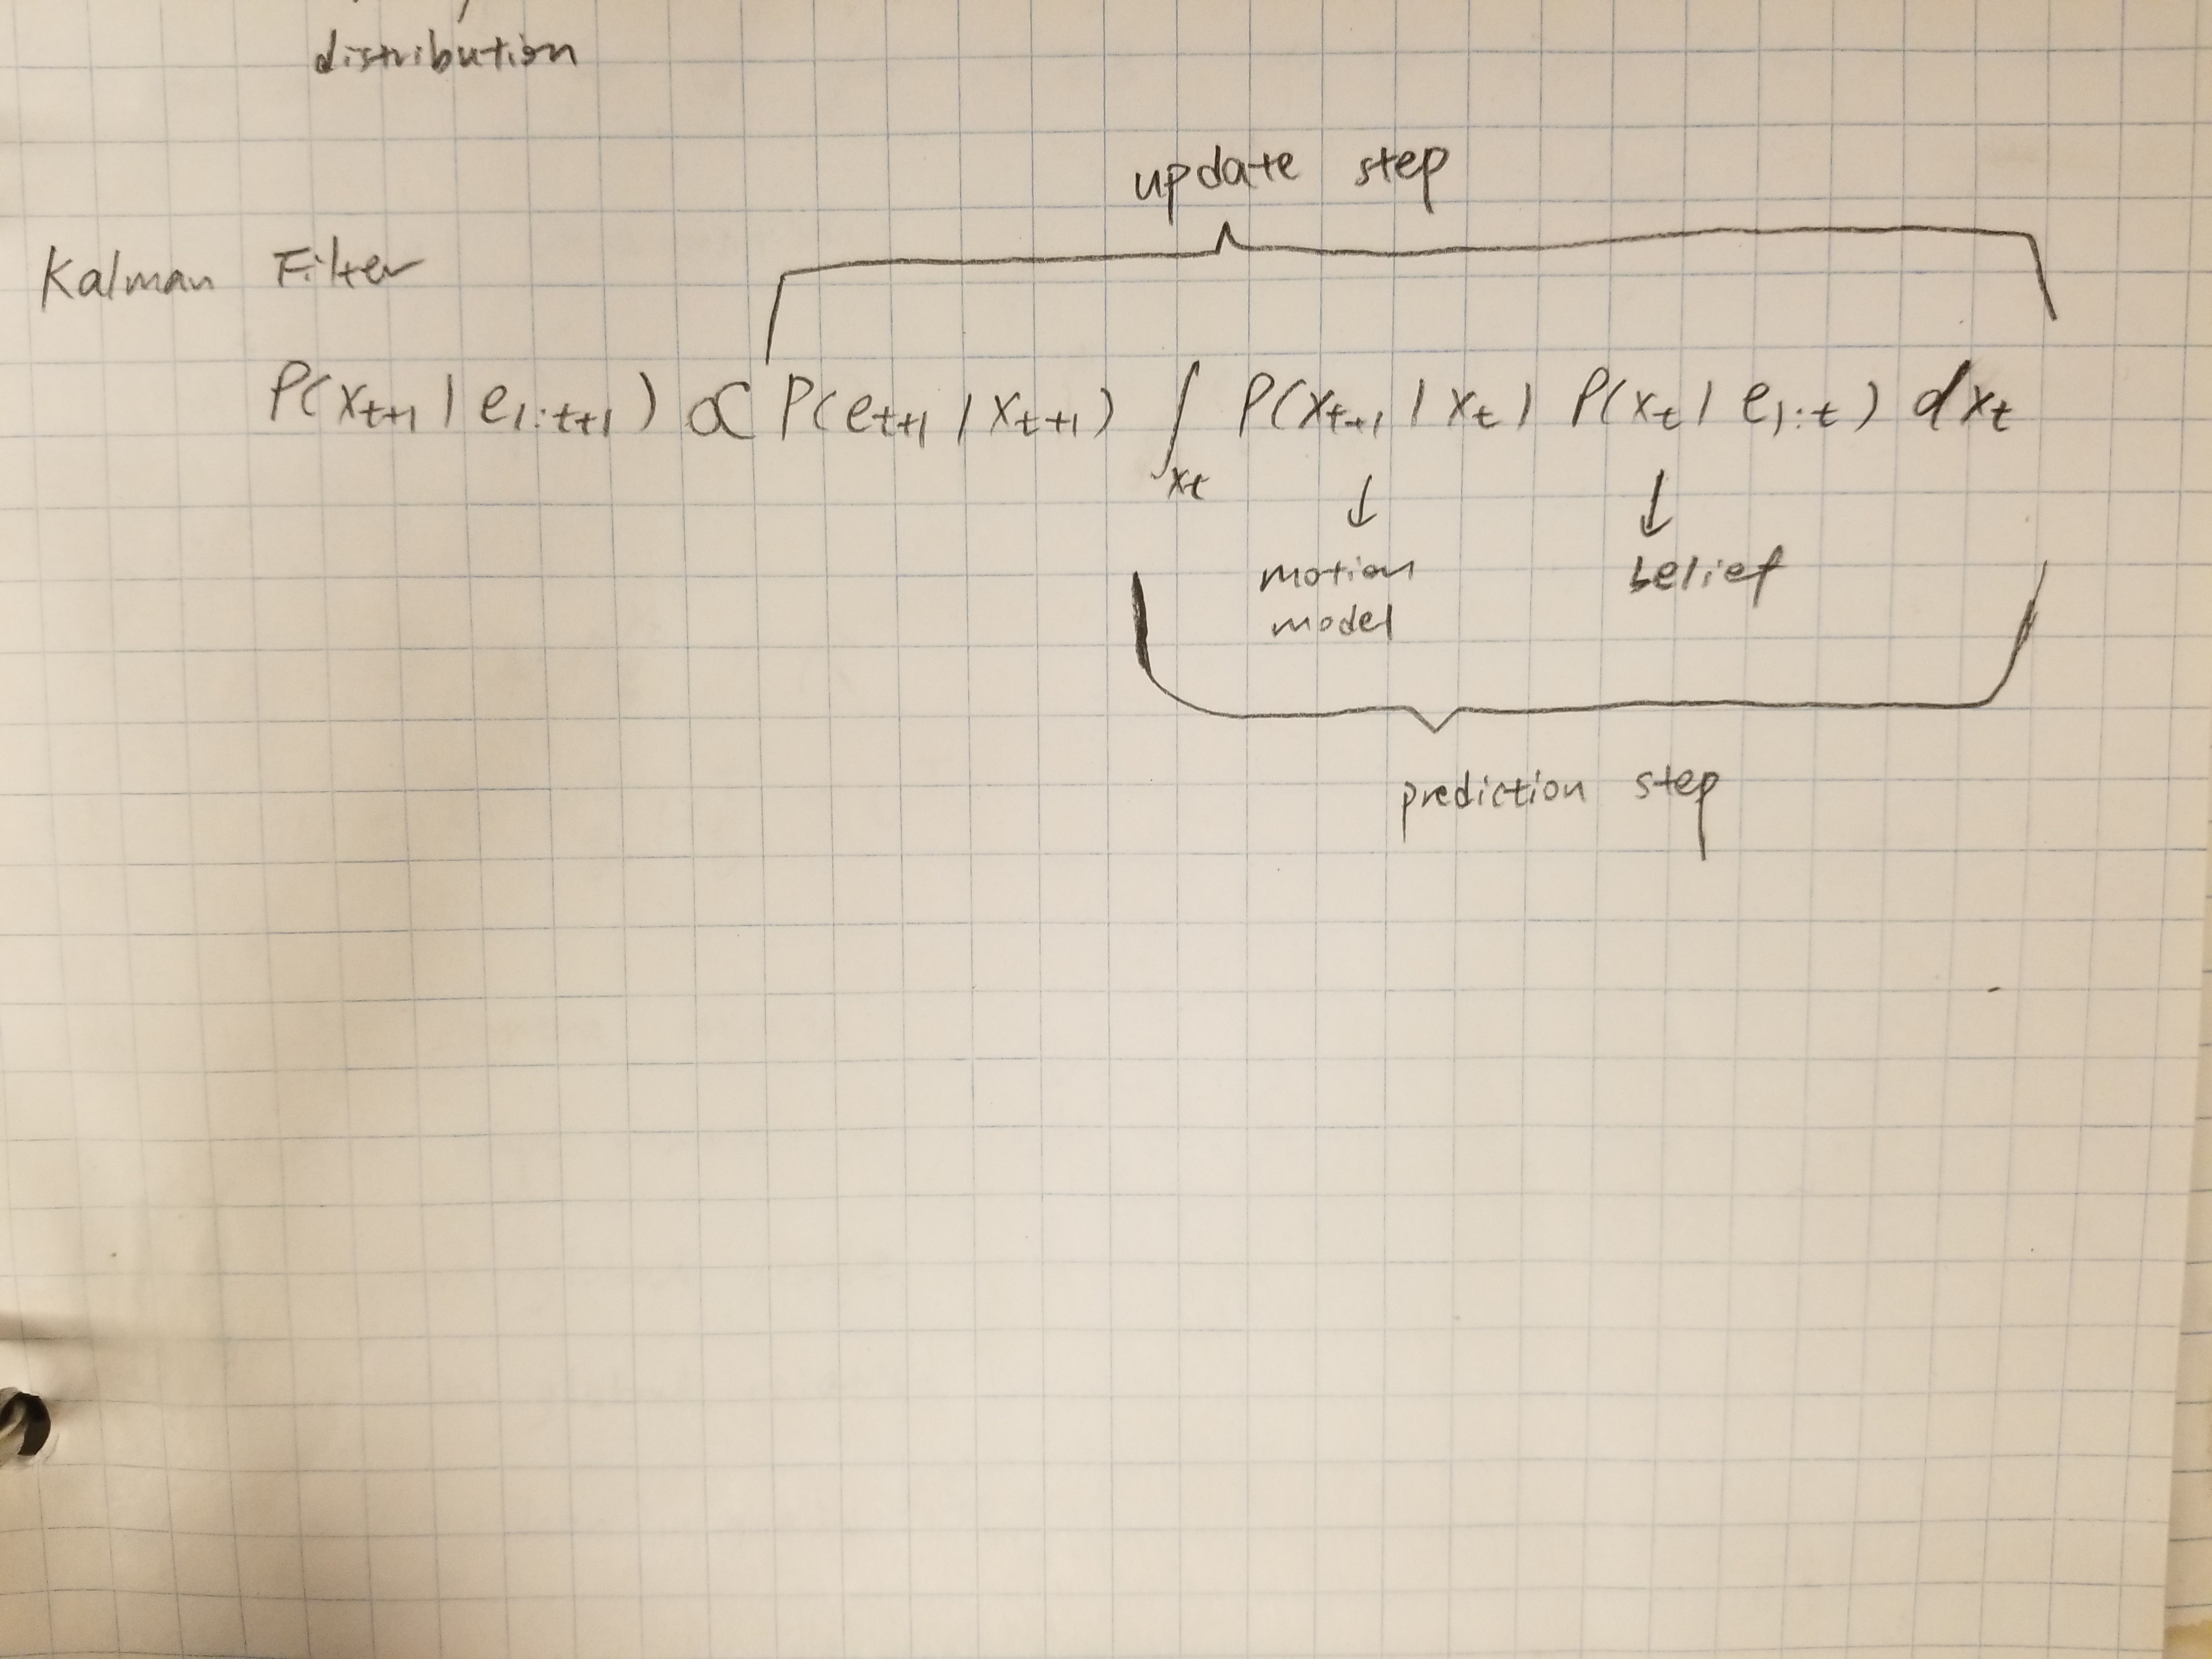 distribution
update step
Kalman Filter
P(x_{t+1} | e_{1:t+1}) ∝ P(e_{t+1} | x_{t+1}) ∫_{x_t} P(x_{t+1} | x_t) P(x_t | e_{1:t}) dx_t
↓ ↓
motion belief
model
prediction step